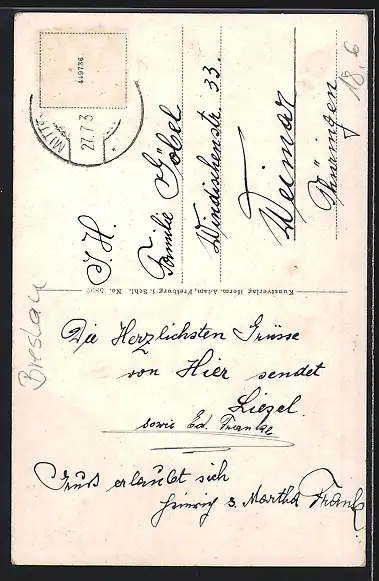 449736
27.7.3
I. H.
Familie Göbel
Windischenstr 33.
Weimar
Thüringen
18.6
Kunstverlag Herm. Adam, Freiburg i. Schl. No.
Breslau
Die Herzlichsten Grüsse
von Hier sendet
Liezel
sowie Ed. Franke
Gruß erlaubt sich
Heinrich &. Martha Frank